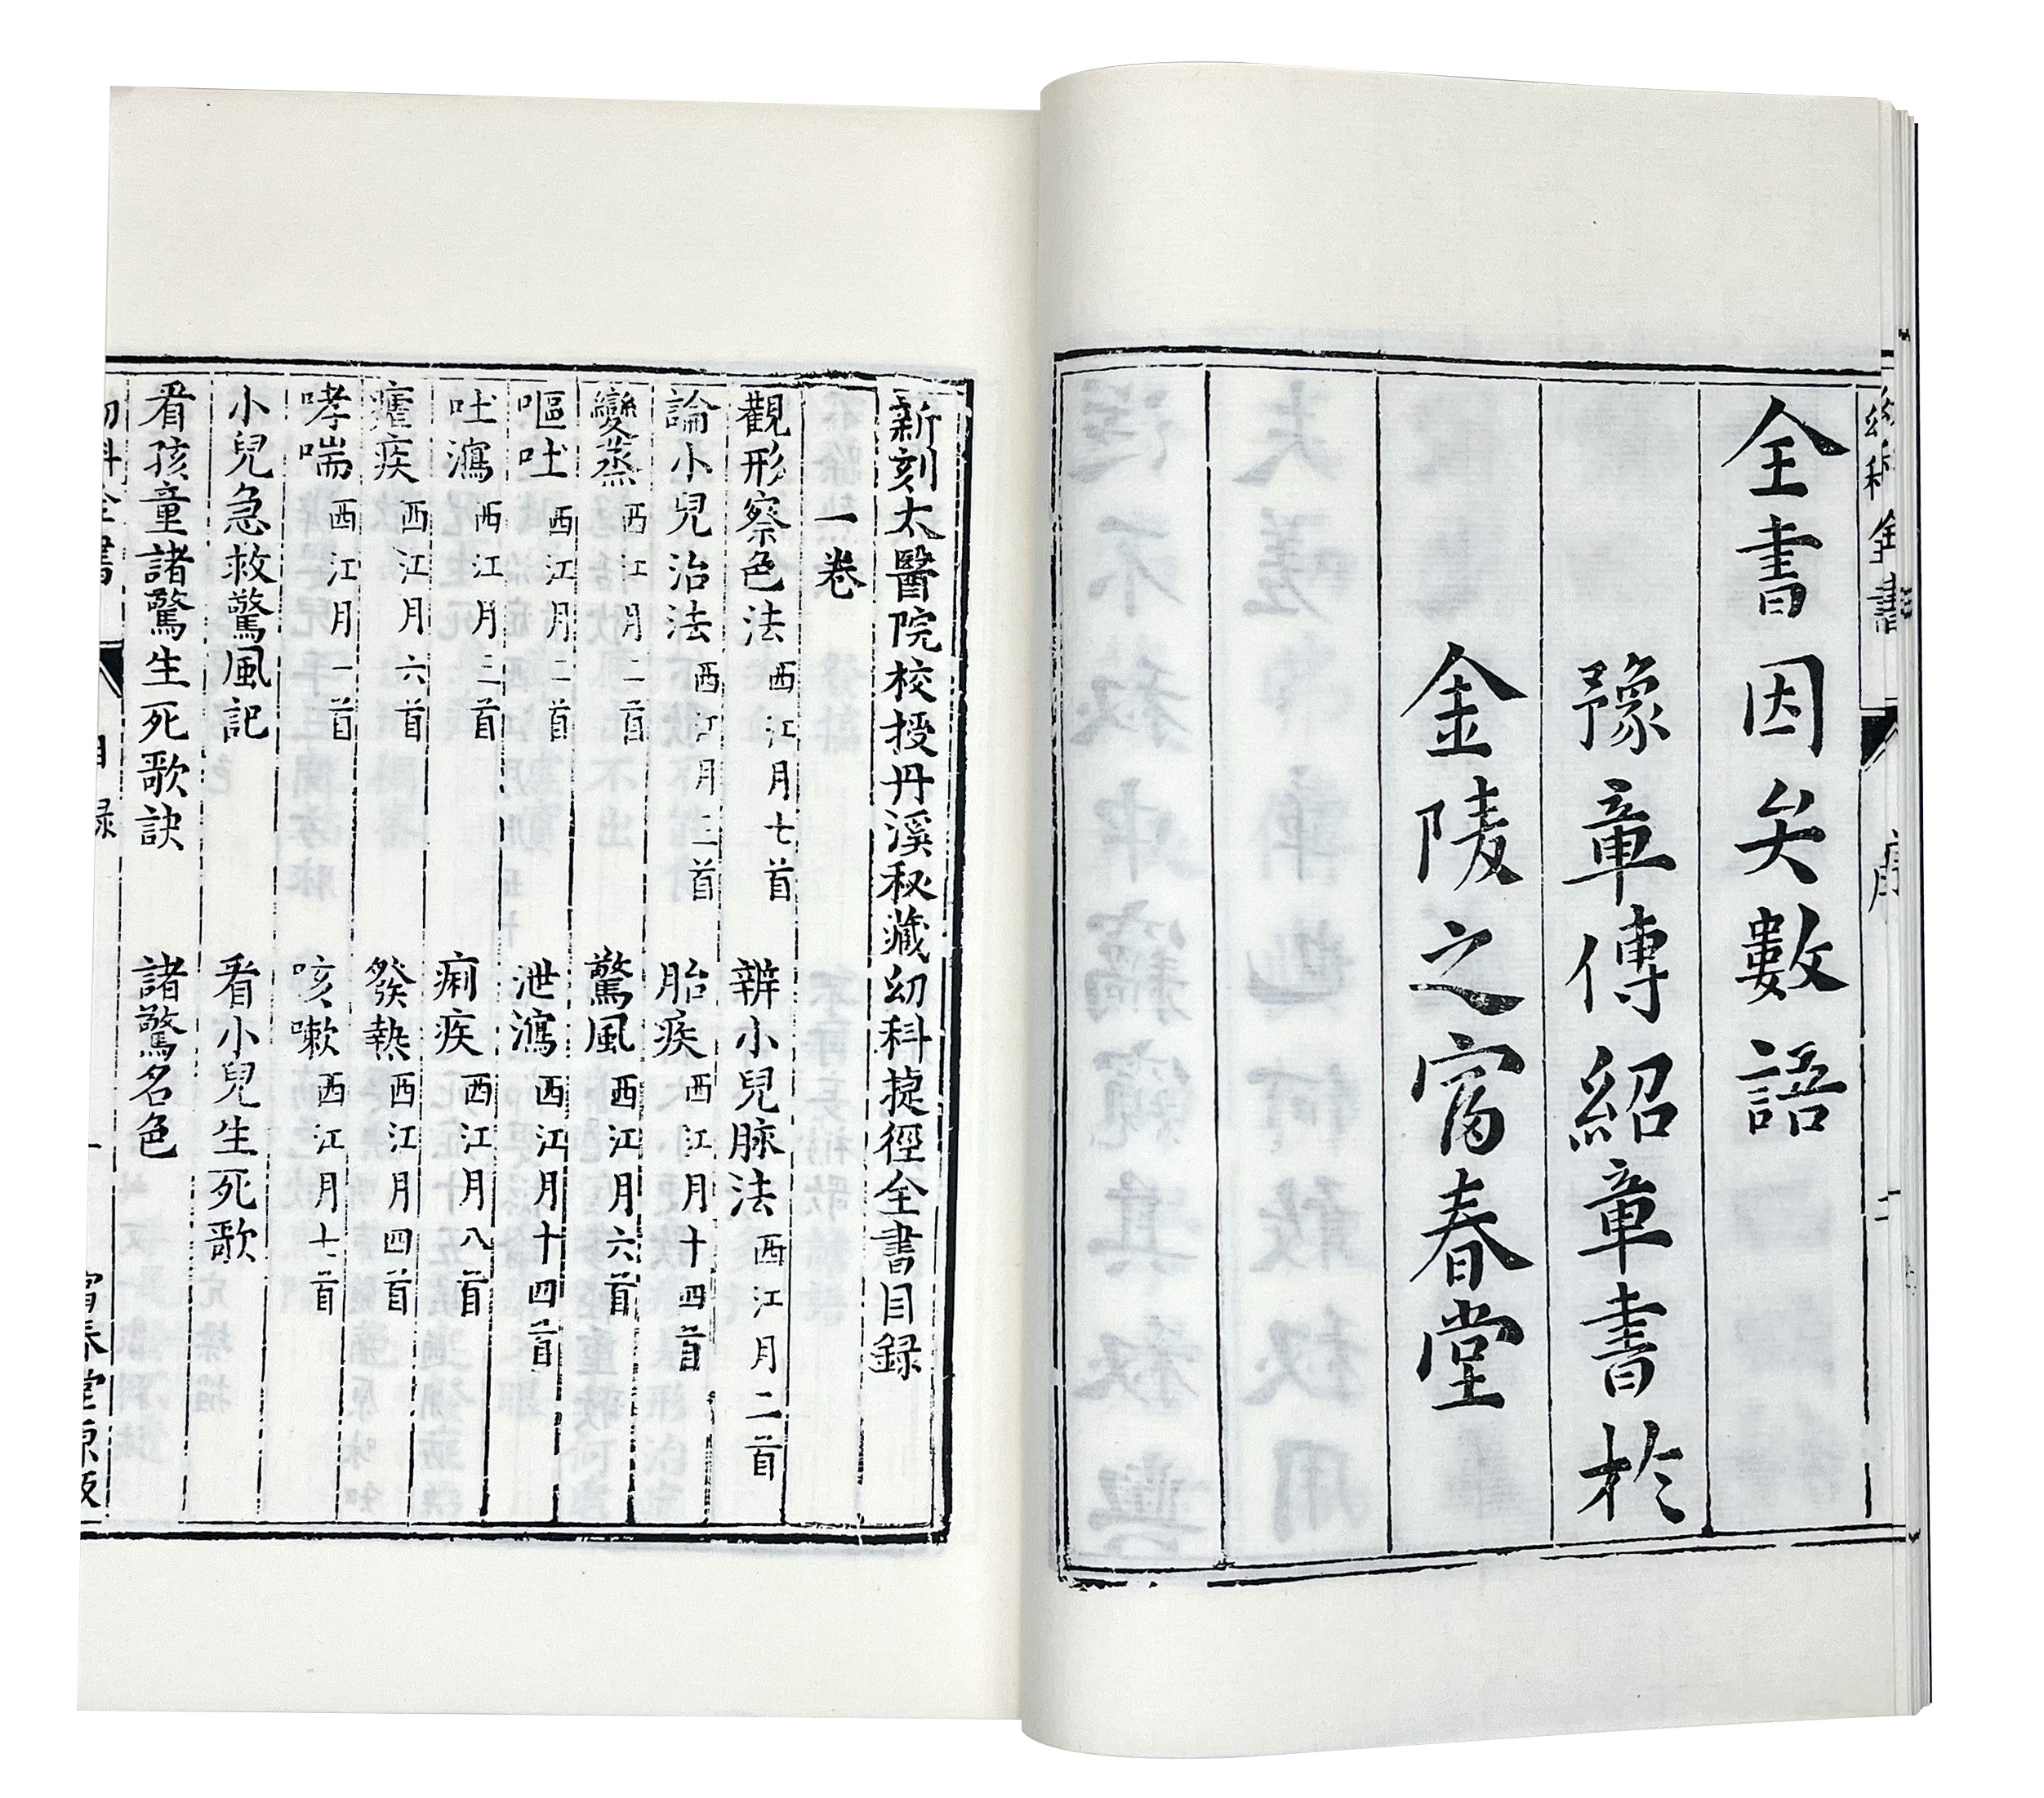 全書因矣數語
豫章傅紹章書於
金陵之富春堂
新刻太醫院校授丹溪秘藏幼科捷徑全書目録
一卷
觀形察色法 西江月七首 辨小兒脉法 西江月二首
論小兒治法 西江月二首 胎疾 西江月十四首
變蒸 西江月二首 驚風 西江月六首
嘔吐 西江月二首 泄瀉 西江月十四首
吐瀉 西江月三首 痢疾 西江月八首
瘧疾 西江月六首 發熱 西江月四首
哮喘 西江月一首 咳嗽 西江月十首
小兒急救驚風記 看小兒生死歌
看孩童諸驚生死歌訣 諸驚名色